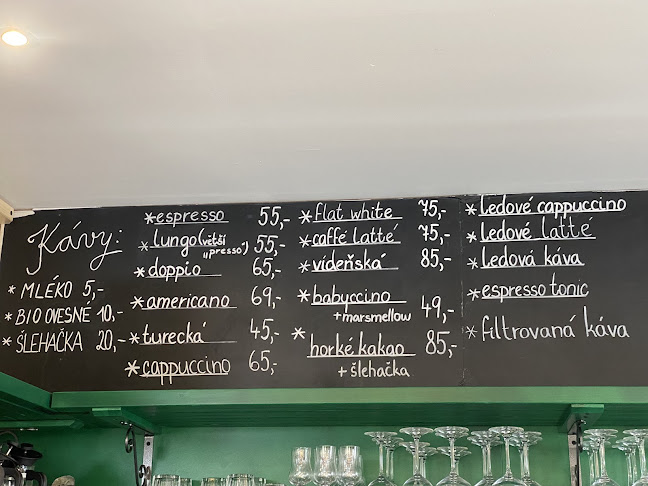 Kávy:
* MLÉKO 5,-
* BIO OVESNÉ 10,-
* ŠLEHAČKA 20,-
* espresso 55,-
* lungo (větší „presso“) 55,-
* doppio 65,-
* americano 69,-
* turecká 45,-
* cappuccino 65,-
* flat white 75,-
* caffé latté 75,-
* vídeňská 85,-
* babyccino
+ marsmellow 49,-
* horké kakao 85,-
+ šlehačka
* ledové cappuccino
* ledové latté
* ledová káva
* espresso tonic
* filtrovaná káva